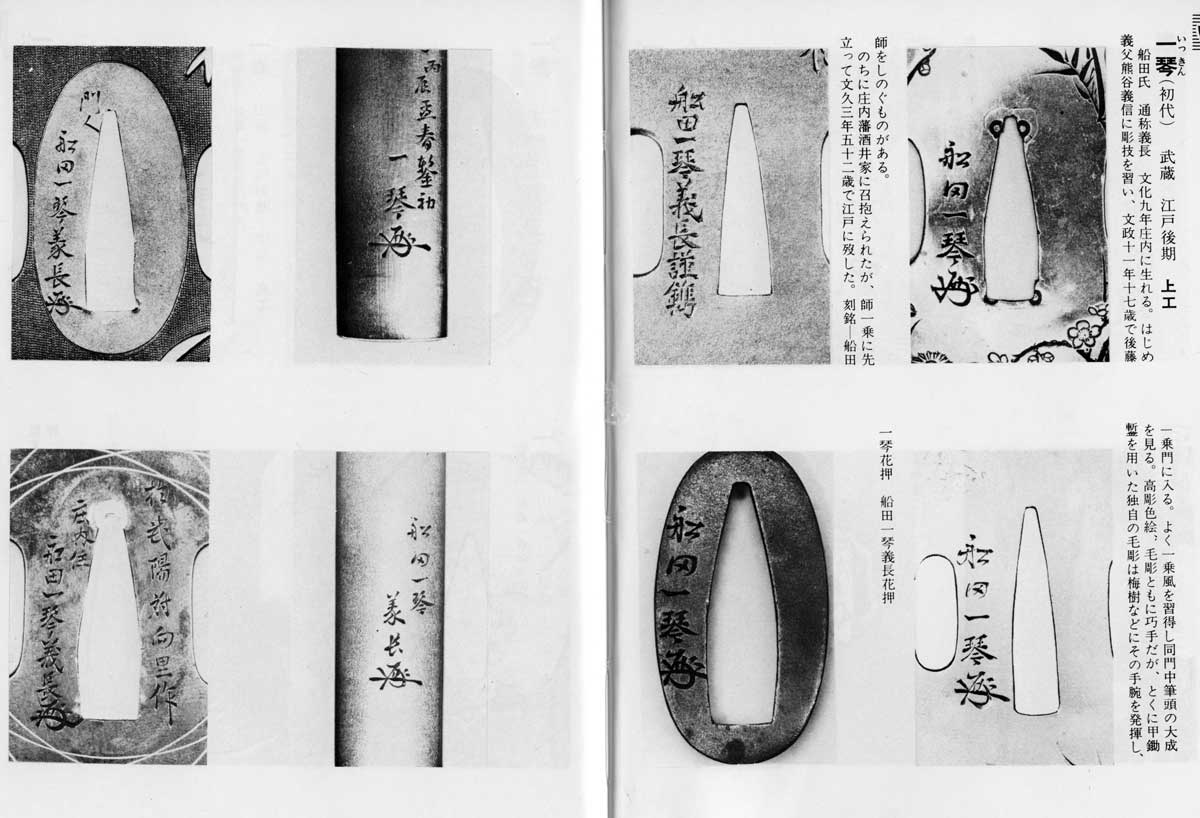 いっきん
一琴(初代) 武蔵 江戸後期 上工
船田氏 通称義長 文化九年庄内に生れる。はじめ
義父熊谷義信に彫技を習い、文政十一年十七歳で後藤
一乗門に入る。よく一乗風を習得し同門中筆頭の大成
を見る。高彫色絵、毛彫ともに巧手だが、とくに甲鋤
鏨を用いた独自の毛彫は梅樹などにその手腕を発揮し、
師をしのぐものがある。
のちに庄内藩酒井家に召抱えられたが、師一乗に先
立って文久三年五十二歳で江戸に歿した。刻銘―船田
一琴花押 船田一琴義長花押
船田一琴
船田一琴義長謹鐫
船田一琴
船田一琴
丙辰孟春鏨初
一琴
門人
船田一琴義長
船田一琴
義長
於武陽對向里作
庄内住
船田一琴義長